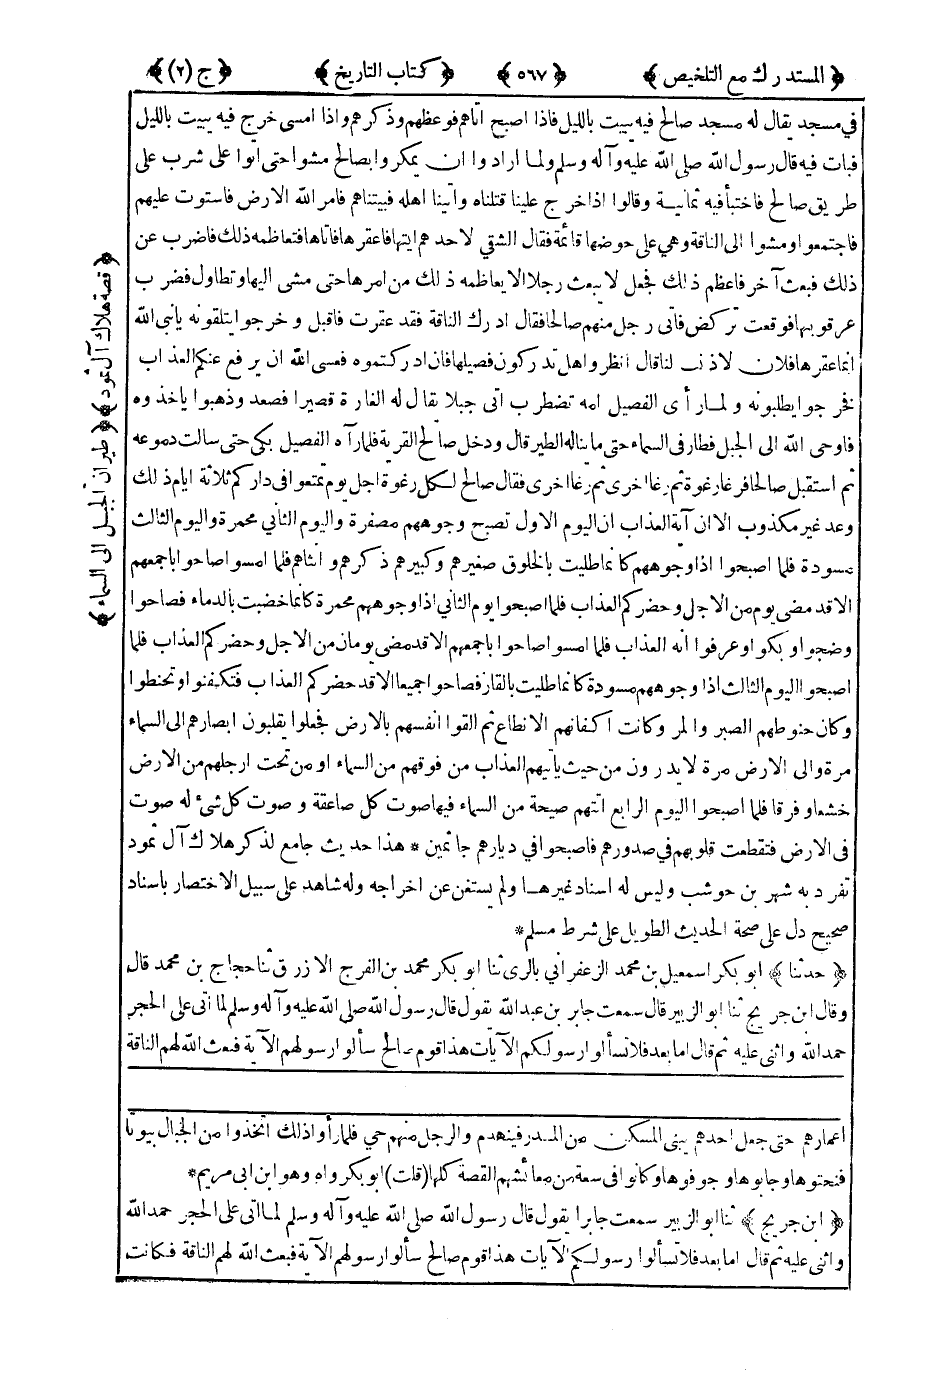 ﴿ المستدرك مع التلخيص ﴾ ﴿ ٥٦٧ ﴾ ﴿ كتاب التاريخ ﴾ ﴿ ج (٢) ﴾
في مسجد يقال له مسجد صالح فيه يبيت بالليل فاذا اصبح اتاهم فوعظهم وذكرهم واذا امسى خرج فيه يبيت بالليل
فبات فيه قال رسول الله صلى الله عليه وآله وسلم ولما ارادوا ان يمكروا بصالح مشوا حتى اتوا على شرب على
طريق صالح فاختبأ فيه ثمانية وقالوا اذا خرج علينا قتلناه واتينا اهله فبيتناهم فامر الله الارض فاستوت عليهم
فاجتمعوا ومشوا الى الناقة وهي على حوضها قائمة فقال الشقي لاحدهم ايتها فاعقرها فاتاها فتعاظمه ذلك فاضرب عن
ذلك فبعث آخر فاعظم ذلك فجعل لا يبعث رجلا الا يعاظمه ذلك من امرها حتى مشى اليها وتطاول فضرب
عرقوبها فوقعت تركض فاتى رجل منهم صالحا فقال ادرك الناقة فقد عقرت فاقبل وخرجوا يتلقونه يانبى الله
انما عقرها فلان لا ذنب لنا قال انظروا هل تدركون فصيلها فان ادركتموه فعسى الله ان يرفع عنكم العذاب
فخرجوا يطلبونه ولما رأى الفصيل امه تضطرب اتى جبلا يقال له الغارة قصيرا فصعد وذهبوا يأخذوه
فاوحى الله الى الجبل فطار فى السماء حتى ما يناله الطير قال ودخل صالح القرية فلما رآه الفصيل بكى حتى سالت دموعه
ثم استقبل صالحا فرغا رغوة ثم رغا اخرى ثم رغا اخرى فقال صالح لكل رغوة اجل يوم تمتعوا فى داركم ثلاثة ايام ذلك
وعد غير مكذوب الا ان آية العذاب ان اليوم الاول تصبح وجوههم مصفرة واليوم الثاني محمرة واليوم الثالث
مسودة فلما اصبحوا اذا وجوههم كانما طليت بالخلوق صغيرهم وكبيرهم ذكرهم وانثاهم فلما امسوا صاحوا باجمعهم
الا قد مضى يوم من الاجل وحضركم العذاب فلما اصبحوا يوم الثاني اذا وجوههم محمرة كانما خضبت بالدماء فصاحوا
وضجوا وبكوا وعرفوا انه العذاب فلما امسوا صاحوا باجمعهم الا قد مضى يومان من الاجل وحضركم العذاب فلما
اصبحوا اليوم الثالث اذا وجوههم مسودة كانما طليت بالقار فصاحوا جميعا الا قد حضركم العذاب فتكفنوا وتحنطوا
وكان حنوطهم الصبر والمر وكانت اكفانهم الانطاع ثم القوا انفسهم بالارض فجعلوا يقلبون ابصارهم الى السماء
مرة والى الارض مرة لايدرون من حيث يأتيهم العذاب من فوقهم من السماء او من تحت ارجلهم من الارض
خشعا وفرقا فلما اصبحوا اليوم الرابع اتتهم صيحة من السماء فيها صوت كل صاعقة وصوت كل شئ له صوت
فى الارض فتقطعت قلوبهم في صدورهم فاصبحوا في ديارهم جاثمين * هذا حديث جامع لذكر هلاك آل ثمود
تفرد به شهر بن حوشب وليس له اسناد غيرها ولم يستغن عن اخراجه وله شاهد على سبيل الاختصار باسناد
صحيح دل على صحة الحديث الطويل على شرط مسلم*
﴿ حدثنا ﴾ ابو بكر اسمعيل بن محمد الزعفراني بالرى ثنا ابو بكر محمد بن الفرج الازرق ثنا حجاج بن محمد قال
وقال ابن جريج ثنا ابو الزبير قال سمعت جابر بن عبد الله يقول قال رسول الله صلى الله عليه وآله وسلم لما اتى على الحجر
حمد الله واثنى عليه ثم قال اما بعد فلا تسألوا رسولكم الآيات هذا قوم صالح سألوا رسولهم الآية فبعث الله لهم الناقة
اعمارهم حتى جعل احدهم يبنى المسكن من المدر فينهدم والرجل منهم حي فلما رأوا ذلك اتخذوا من الجبال بيوتا
فنحتوها وجابوها وجوفوها وكانوا فى سعة من معائشهم القصة كلها (قلت) ابو بكر واه وهو ابن ابى مريم*
﴿ ابن جريج ﴾ ثنا ابو الزبير سمعت جابرا يقول قال رسول الله صلى الله عليه وآله وسلم لما اتى على الحجر حمد الله
واثنى عليه ثم قال اما بعد فلا تسألوا رسولكم الآيات هذا قوم صالح سألوا رسولهم الآية فبعث الله لهم الناقة فكانت
﴿ قصة هلاك آل ثمود ﴾ ﴿ طيران الجبل الى السماء ﴾